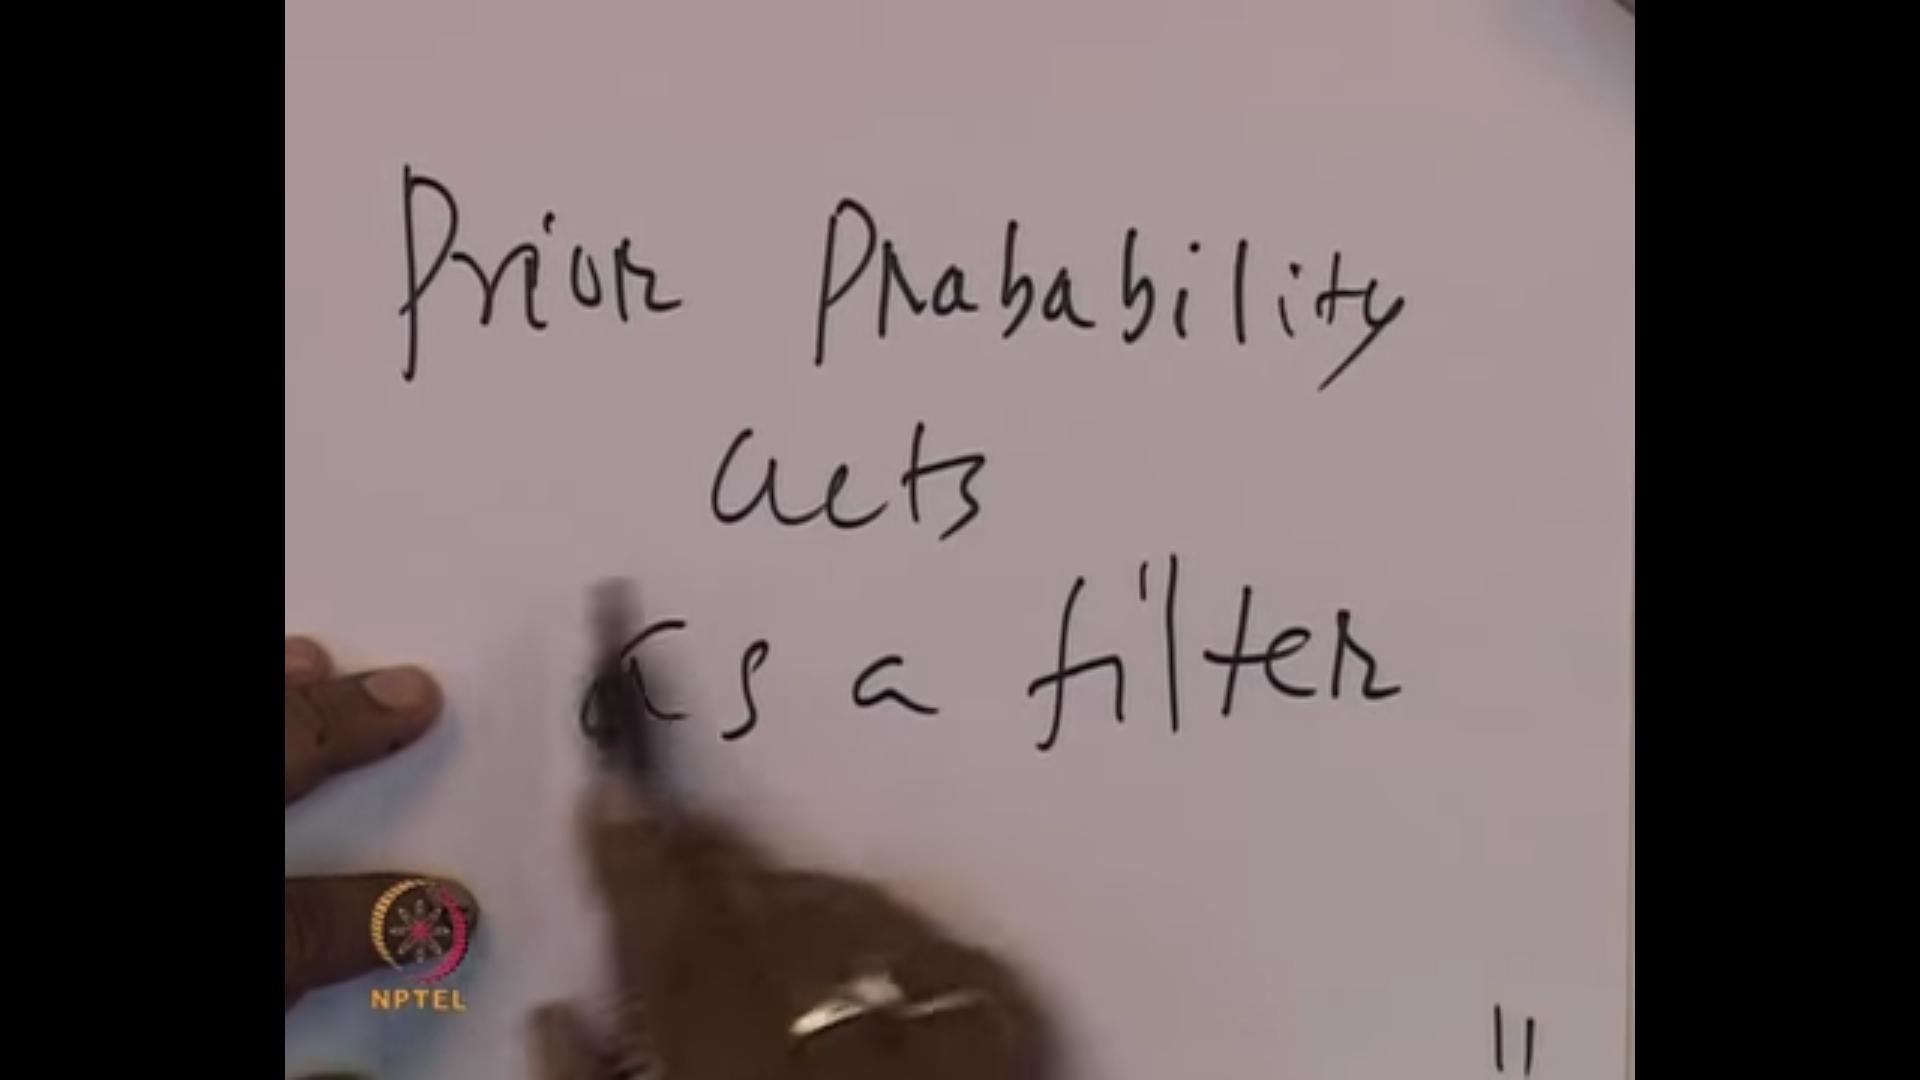 Prior Prabability
acts
as a filter
NPTEL
11